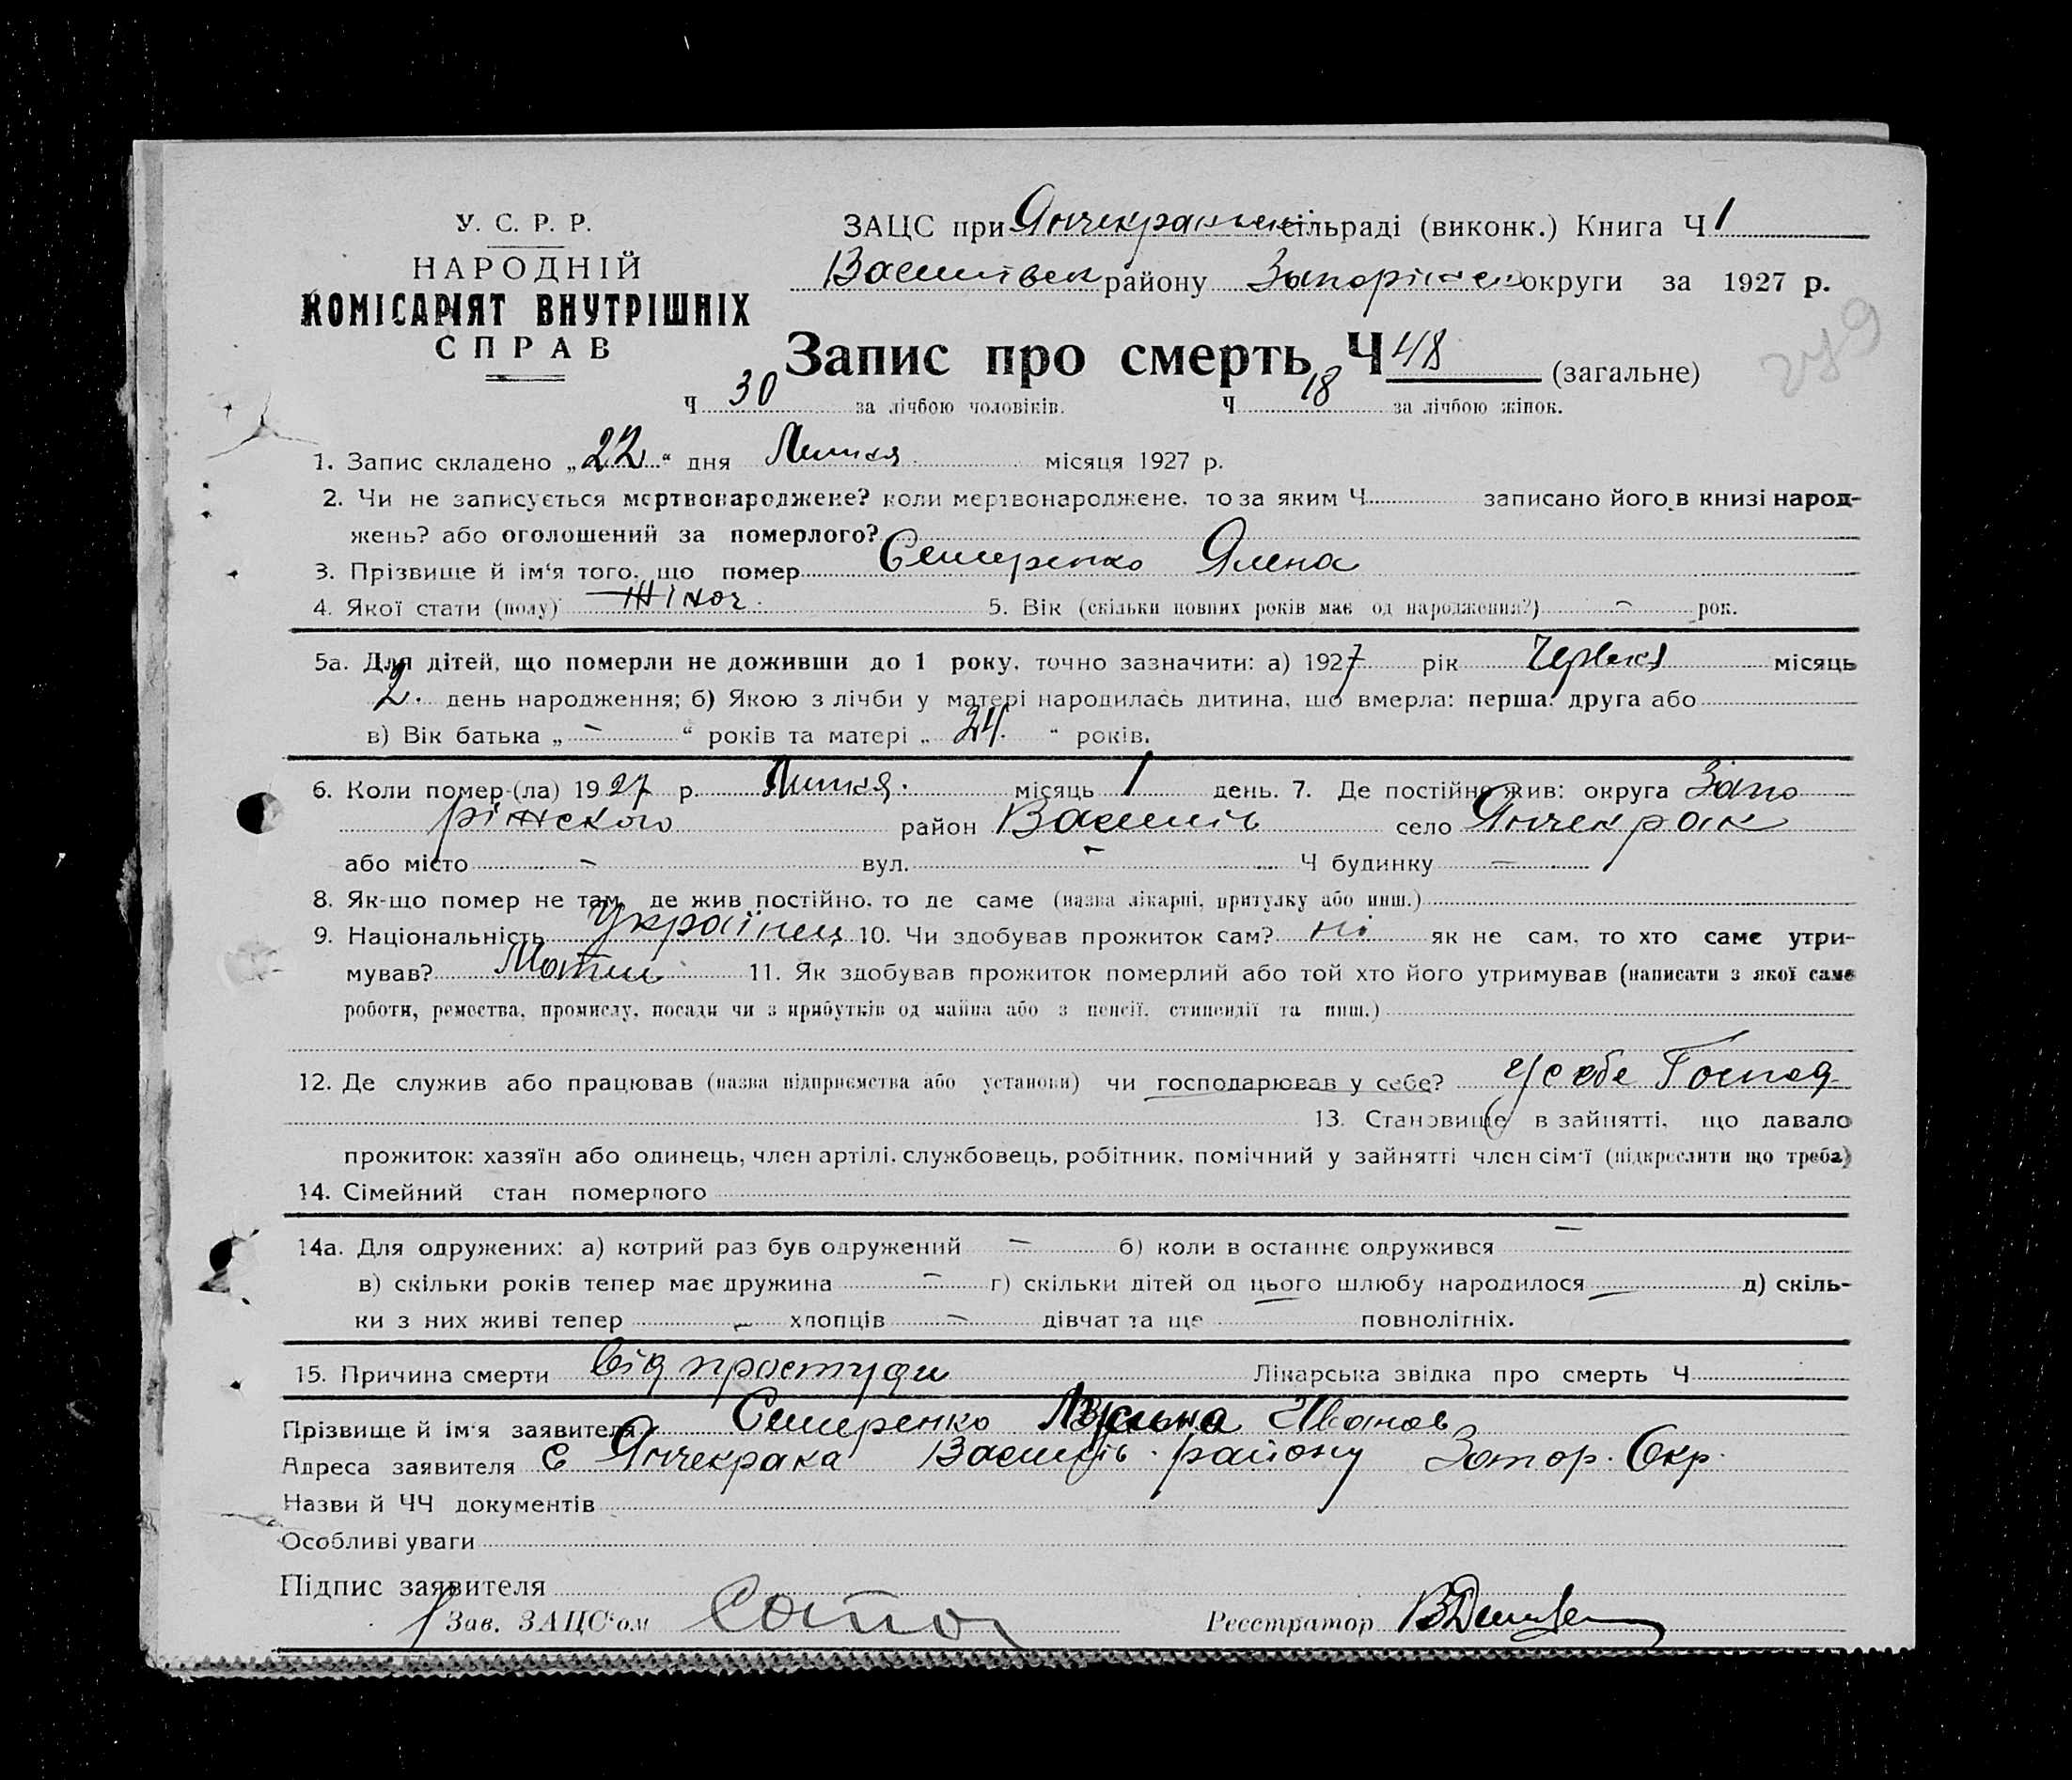 У. С. Р. Р.
НАРОДНІЙ
КОМІСАРІЯТ ВНУТРІШНІХ
СПРАВ
ЗАЦС при Янчекракській сільраді (виконк.) Книга Ч 1
Василівськ району Запоріжськ округи за 1927 р.
279
Запис про смерть Ч 48 (загальне)
Ч 30 за лічбою чоловіків. Ч 18 за лічбою жінок.
1. Запис складено „22“ дня Липня місяця 1927 р.
2. Чи не записується мертвонароджене? коли мертвонароджене, то за яким Ч записано його в книзі народ-
жень? або оголошений за померлого?
3. Прізвище й ім‘я того, що помер Семеренко Ялена
4. Якої стати (полу) Жіноч. 5. Вік (скільки повних років має од народження?) – рок.
5а. Для дітей, що померли не доживши до 1 року, точно зазначити: а) 1927 рік Червня місяць
2. день народження; б) Якою з лічби у матері народилась дитина, що вмерла: перша, друга або
в) Вік батька „ – “ років та матері „ 24. “ років.
6. Коли помер-(ла) 1927 р. Липня. місяць 1 день. 7. Де постійно жив: округа Запо
ріжского район Василів село Янчекрак
або місто – вул. – Ч будинку –
8. Як-що помер не там, де жив постійно, то де саме (назва лікарні, притулку або инш.)
9. Національність Українец 10. Чи здобував прожиток сам? ні як не сам, то хто саме утри-
мував? Мати 11. Як здобував прожиток померлий або той хто його утримував (написати з якої саме
роботи, ремества, промислу, посади чи з прибутків од майна або з пенсії, стипендії та инш.)
12. Де служив або працював (назва підприємства або установи) чи господарював у себе? У себе Господ
13. Становище в зайнятті, що давало
прожиток: хазяїн або одинець, член артілі, службовець, робітник, помічний у зайнятті член сім‘ї (підкреслити що треба)
14. Сімейний стан померлого
14а. Для одружених: а) котрий раз був одружений – б) коли в останнє одружився –
в) скільки років тепер має дружина – г) скільки дітей од цього шлюбу народилося – д) скіль-
ки з них живі тепер – хлопців – дівчат та ще повнолітніх.
15. Причина смерти від простуди Лікарська звідка про смерть Ч
Прізвище й ім‘я заявителя Семеренко Иванов
Адреса заявителя с Янчекрака Василів. району Запор. Окр.
Назви й ЧЧ документів
Особливі уваги
Підпис заявителя
Зав. ЗАЦС‘ом Реєстратор